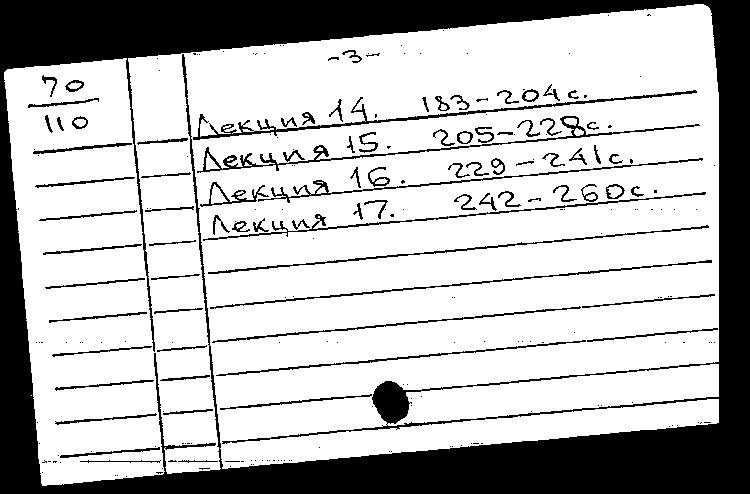 -3-
70
110
Лекция 14. 183-204с.
Лекция 15. 205-228с.
Лекция 16. 229-241с.
Лекция 17. 242-260с.